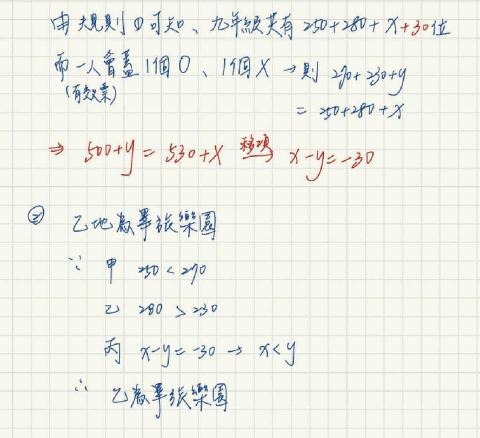 由規則①可知、九年級共有 250+280+x+30位
而一人會蓋1個O、1個X → 則 270+230+y
(有效票)
= 250+280+x
⇒ 500+y = 530+x 移項⟹ x-y=-30
② 乙地為畢旅樂園
∵ 甲 250 < 270
乙 280 > 230
丙 x-y=-30 → x<y
∴ 乙為畢旅樂園